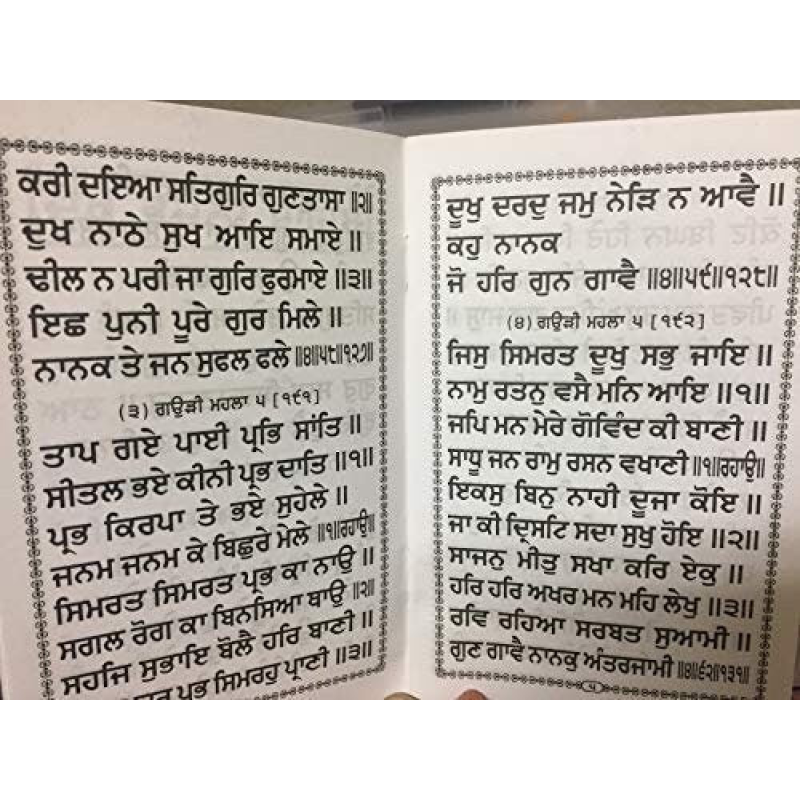 ਕਰੀ ਦਇਆ ਸਤਿਗੁਰਿ ਗੁਣਤਾਸਾ ॥੨॥
ਦੁਖ ਨਾਠੇ ਸੁਖ ਆਇ ਸਮਾਏ ॥
ਢੀਲ ਨ ਪਰੀ ਜਾ ਗੁਰਿ ਫੁਰਮਾਏ ॥੩॥
ਇਛ ਪੁਨੀ ਪੂਰੇ ਗੁਰ ਮਿਲੇ ॥
ਨਾਨਕ ਤੇ ਜਨ ਸੁਫਲ ਫਲੇ ॥੪॥੫੮॥੧੨੭॥
(੩) ਗਉੜੀ ਮਹਲਾ ੫ [੧੯੧]
ਤਾਪ ਗਏ ਪਾਈ ਪ੍ਰਭਿ ਸਾਂਤਿ ॥
ਸੀਤਲ ਭਏ ਕੀਨੀ ਪ੍ਰਭ ਦਾਤਿ ॥੧॥
ਪ੍ਰਭ ਕਿਰਪਾ ਤੇ ਭਏ ਸੁਹੇਲੇ ॥
ਜਨਮ ਜਨਮ ਕੇ ਬਿਛੁਰੇ ਮੇਲੇ ॥੧॥ਰਹਾਉ॥
ਸਿਮਰਤ ਸਿਮਰਤ ਪ੍ਰਭ ਕਾ ਨਾਉ ॥
ਸਗਲ ਰੋਗ ਕਾ ਬਿਨਸਿਆ ਥਾਉ ॥੨॥
ਸਹਜਿ ਸੁਭਾਇ ਬੋਲੈ ਹਰਿ ਬਾਣੀ ॥
ਪ੍ਰਭ ਸਿਮਰਹੁ ਪ੍ਰਾਣੀ ॥੩॥
ਦੂਖੁ ਦਰਦੁ ਜਮੁ ਨੇੜਿ ਨ ਆਵੈ ॥
ਕਹੁ ਨਾਨਕ
ਜੋ ਹਰਿ ਗੁਨ ਗਾਵੈ ॥੪॥੫੯॥੧੨੮॥
(੪) ਗਉੜੀ ਮਹਲਾ ੫ [੧੯੨]
ਜਿਸੁ ਸਿਮਰਤ ਦੂਖੁ ਸਭੁ ਜਾਇ ॥
ਨਾਮੁ ਰਤਨੁ ਵਸੈ ਮਨਿ ਆਇ ॥੧॥
ਜਪਿ ਮਨ ਮੇਰੇ ਗੋਵਿੰਦ ਕੀ ਬਾਣੀ ॥
ਸਾਧੂ ਜਨ ਰਾਮੁ ਰਸਨ ਵਖਾਣੀ ॥੧॥ਰਹਾਉ॥
ਇਕਸੁ ਬਿਨੁ ਨਾਹੀ ਦੂਜਾ ਕੋਇ ॥
ਜਾ ਕੀ ਦ੍ਰਿਸਟਿ ਸਦਾ ਸੁਖੁ ਹੋਇ ॥੨॥
ਸਾਜਨੁ ਮੀਤੁ ਸਖਾ ਕਰਿ ਏਕੁ ॥
ਹਰਿ ਹਰਿ ਅਖਰ ਮਨ ਮਹਿ ਲੇਖੁ ॥੩॥
ਰਵਿ ਰਹਿਆ ਸਰਬਤ ਸੁਆਮੀ ॥
ਗੁਣ ਗਾਵੈ ਨਾਨਕੁ ਅੰਤਰਜਾਮੀ ॥੪॥੬੨॥੧੩੧॥
੫